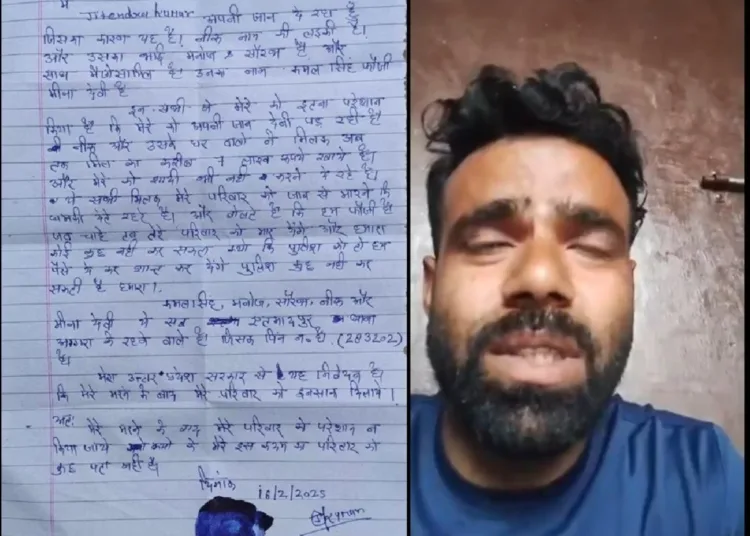 मैं Jitendra Kumar अपनी जान दे रहा हूँ
जिसका कारण यह है। नीक नाम की लड़की है।
और उसका भाई मनोज & सौरभ है और
साथ में शामिल है। उनका नाम कमल सिंह फौजी
मीना देवी है
इन सभी ने मेरे को इतना परेशान
किया है कि मेरे को अपनी जान देनी पड़ रही है
नीक और उसके घर वालो ने मिलकर अब
तक मिल का करीब 7 लाख रूपये खाये है।
और मेरे को शादी भी नही करने दे रहे है।
ये सभी मिलकर मेरे परिवार को जान से मारने कि
धमकी देते रहते है। और बोलते है कि हम फौजी है
जब चाहे तब तेरे परिवार को मार देंगे और हमारा
कोई कुछ नही कर सकता क्यो कि पुलिस को तो हम
पैसे दे कर शान्त कर देंगे पुलिस कुछ नही कर
सकती है हमारा।
कमल सिंह, मनोज, सौरभ, नीक और
मीना देवी ये सब एत्मादपुर
आगरा के रहने वाले है। जिसका पिन न० है. (283202)
है।
मेरा उत्तर प्रदेश सरकार से यह निवेदन है।
कि मेरे मरने के बाद मेरे परिवार को इन्साफ दिलाये।
अतः मेरे मरने के बाद मेरे परिवार को परेशान न
किया जाये क्यो के मेरे इस कदम का परिवार को
कुछ पता नही है।
दिनांक
18/2/2025